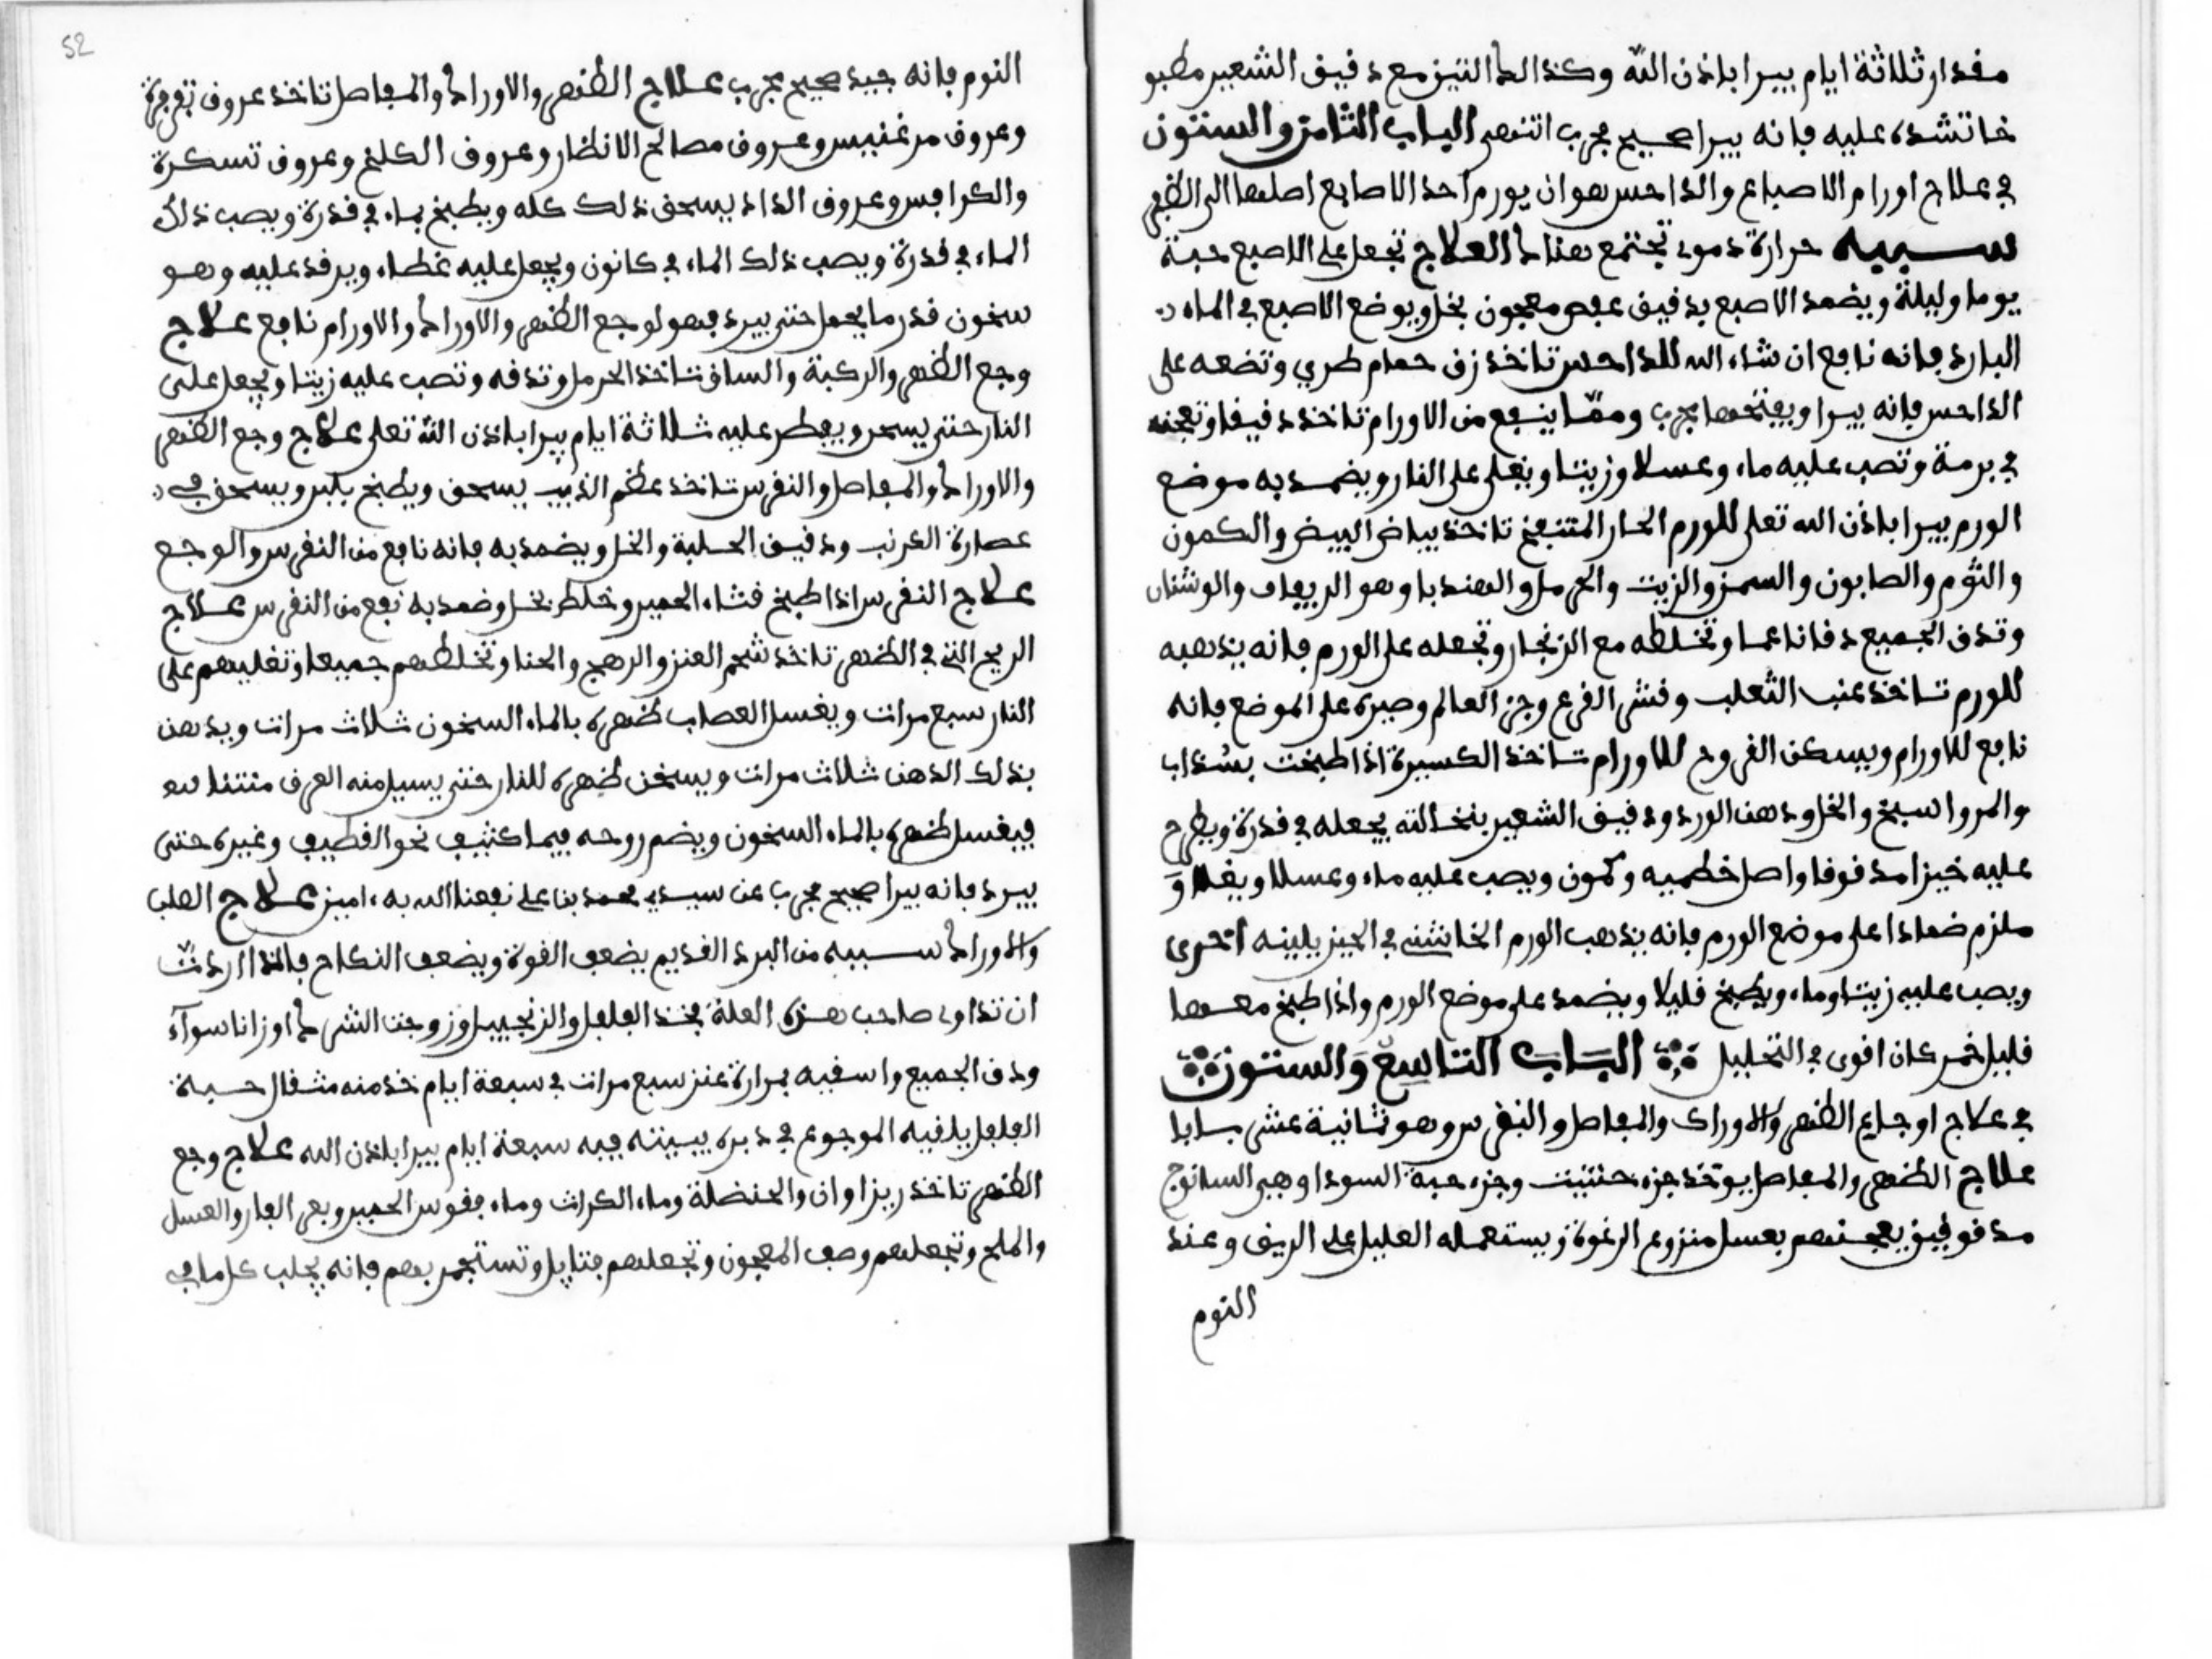 مقدار ثلاثة ايام يبرا باذن الله وكذالك التين مع دقيق الشعير مطبو
خا تشده عليه فانه يبرا صحيح مجرب انتهى الباب الثامن والستون
في علاج اورام الاصباع والداحس هو ان يورم احد الاصابع اصلها الى الظفر
سببه حرارة دموى تجتمع هناك العلاج تجعل على الاصبع حبة
يوما وليلة ويضمد الاصبع بدقيق عفص معجون بخل ويوضع الاصبع في الماء
البارد فانه نافع ان شاء الله للداحس تاخذ زق حمام طري وتضعه على
الداحس فانه يبرا ويفتحها مجرب ومما ينفع من الاورام تاخذ دقيقا وتعجنه
في برمة وتصب عليه ماء وعسلا وزيتا ويغلى على النار ويضمد به موضع
الورم يبرا باذن الله تعلى للورم الحار المتنفخ تاخذ بياض البيض والكمون
والثوم والصابون والسمن والزيت والحرمل والهندبا وهو الريفاف والوشنان
وتدق الجميع دقا ناعما وتخلطه مع الزنجار وتجعله على الورم فانه يذهبه
للورم تاخذ عنب الثعلب وقشر القرع وجز العالم وصبره على الموضع فانه
نافع للاورام ويسكن القروح للاورام تاخذ الكسبرة اذا طبخت بسذاب
والمرو اسبخ والخل ودهن الورد ودقيق الشعير بنخالته يجعله في قدرة ويطرح
عليه خبزا مدقوقا واصل خطميه وكمون ويصب عليه ماء وعسلا ويغلا و
ملزم ضمادا على موضع الورم فانه يذهب الورم الخاشن في الحين يلينه اخرى
ويصب عليه زيتا وماء ويطبخ قليلا ويضمد على موضع الورم واذا طبخ معها
قليل خمر كان اقوى في التحليل الباب التاسع والستون
في علاج اوجاع الظهر والاوراك والمفاصل والنفرس وهو ثمانية عشر بابا
علاج الظهر والمفاصل يوخذ جزء حنتيت وجزء حبة السودا وهي السانوج
مدقوقين يعجنهم بعسل منزوع الرغوة ويستعمله العليل على الريق وعند
النوم
52
النوم فانه جيد صحيح مجرب علاج الظهر والاوراك والمفاصل تاخذ عروق تفرفرة
وعروق مرغنيس وعروق مصالح الانظار وعروق الكلخ وعروق تسكرة
والكرافس وعروق الداد يسحق ذلك كله ويطبخ بماء في قدرة ويصب ذلك
الماء في قدرة ويصب ذلك الماء في كانون ويجعل عليه غطاء ويرقد عليه وهو
سخون قدر ما يحمل حتى يبرد فهو لوجع الظهر والاوراك والاورام نافع علاج
وجع الظهر والركبة والساق تاخذ الحرمل وتدقه وتصب عليه زيتا ويجعل على
النار حتى يسحر ويفطر عليه ثلاثة ايام يبرا باذن الله تعلى علاج وجع الظهر
والاوراك والمفاصل والنفرس تاخذ عظم الذيب يسحق ويطبخ بلبن ويسحق في
عصارة العرنب ودقيق الحلبة والخل ويضمد به فانه نافع من النفرس والوجع
علاج النفرس اذا طبخ قثاء الحمير وخلط بخل وضمد به نفع من النفرس علاج
الريح التي في الظهر تاخذ شحم العنز والرهج والحنا وتخلطهم جميعا وتغليهم على
النار سبع مرات ويغسل العصاب ظهره بالماء السخون ثلاث مرات ويدهن
بذلك الدهن ثلاث مرات ويسخن ظهره للنار حتى يسيل منه العرق منتنا
فيغسل ظهره بالماء السخون ويضم روحه فيما كثيف نحو القطيف وغيره حتى
يبرد فانه يبرا صحيح مجرب عن سيدي محمد بن على نفعنا الله به ءامين علاج الصلب
والاوراك سببه من البرد القديم يضعف القوة ويضعف النكاح فالذا اردت
ان تداوى صاحب هذه العلة فخذ الفلفل والزنجبيل وزوجنا الشرك اوزانا سوآء
ودق الجميع واسقيه بمرارة عنز سبع مرات في سبعة ايام خذ منه مثقال حبة
الفلفل يلقيه الموجوع في دبره يبيته فيه سبعة ايام يبرا باذن الله علاج وجع
الظهر تاخذ ريزاوان والحنضلة وماء الكراث وماء فقوس الحمير وبعر الفار والعسل
والملح وتجعلهم وصف المعجون وتجعلهم فتايل وتستجمر بهم فانه يجلب كل ما في